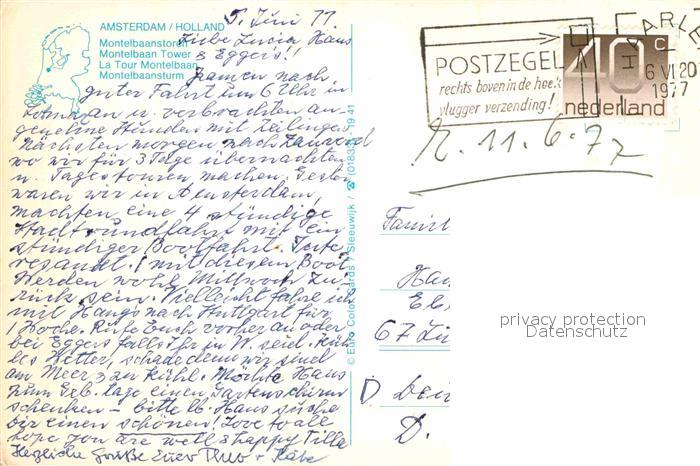 AMSTERDAM / HOLLAND
Montelbaanstoren
Montelbaan Tower
La Tour Montelbaan
Montelbaansturm
5. Juni 77
Liebe Lucia Hans
& Eggers!!
Kamen nach
guter Fahrt um 6 Uhr in
an u. verbrachten an
genehme Stunden mit
Nächsten morgen nach
wo wir für 3 Tage übernachten
u. Tagestouren machen. Gestern
waren wir in Amsterdam,
machten eine 4 stündige
Stadtrundfahrt mit ein
stündiger Bootfahrt.
mit diesem Boot
Werden wohl Mittwoch zu
rück sein. Vielleicht fahre ich
mit Hangs nach Stuttgart für
1 Woche. Rufe Euch vorher an oder
bei Eggers falls Ihr in W. seid. Küh
les Wetter, schade denn wir sind
am Meer & zu kühl. Möchte Hans
zum Geb. tage einen Gartenschirm
schenken – bitte lb. Hans suche
Dir einen schönen! Love to all
hope you are well & happy Tilla
Herzliche Grüße Euer Theo + Käte
© Euro Color Cards / Sleeuwijk / ☎ (01833) - 19 41
POSTZEGEL
rechts boven in de hoek
vlugger verzending!
HARLE
6 VI 20
1977
40 c
nederland
R. 11. 6. 77
Famil
Han
67
D
D.
privacy protection
Datenschutz